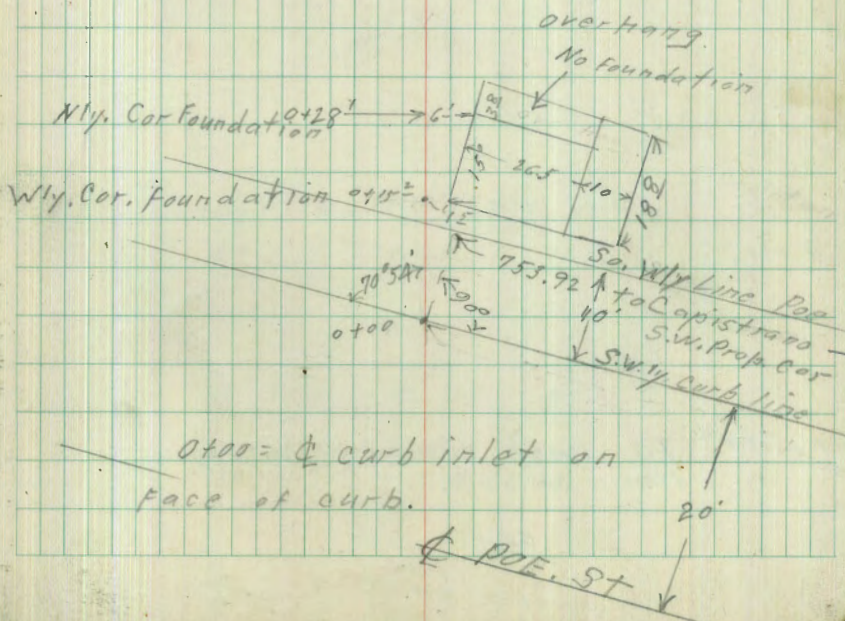 overhang
No foundation
Nly. Cor Foundation 0+28 1
6 1
3 8
15 6
26.5
10
18 8
Wly. Cor. foundation 0+15 2
So. Wly Line Poe
753.92
to Capistrano
S.W. Prop. Cor
70° 54'
900
10'
0+00
S.W.ly curb line
0+00 = ℄ curb inlet on
Face of curb.
20'
℄ POE. St